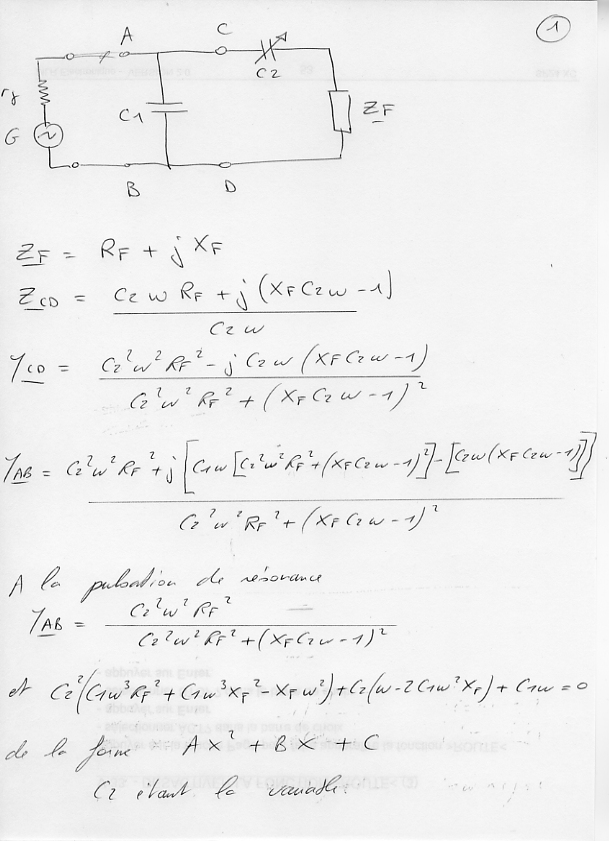 1
A
C
C2
rg
C1
ZF
G
B
D
ZF = RF + j XF
ZCD = (C2 ω RF + j (XF C2 ω - 1)) / (C2 ω)
YCD = (C2² ω² RF² - j C2 ω (XF C2 ω - 1)) / (C2² ω² RF² + (XF C2 ω - 1)²)
YAB = (C2² ω² RF² + j [C1 ω [C2² ω² RF² + (XF C2 ω - 1)²] - [C2 ω (XF C2 ω - 1)]]) / (C2² ω² RF² + (XF C2 ω - 1)²)
A la pulsation de résonance
YAB = (C2² ω² RF²) / (C2² ω² RF² + (XF C2 ω - 1)²)
et C2² (C1 ω³ RF² + C1 ω³ XF² - XF ω²) + C2 (ω - 2 C1 ω² XF) + C1 ω = 0
de la forme A x² + B x + C
C2 étant la variable.